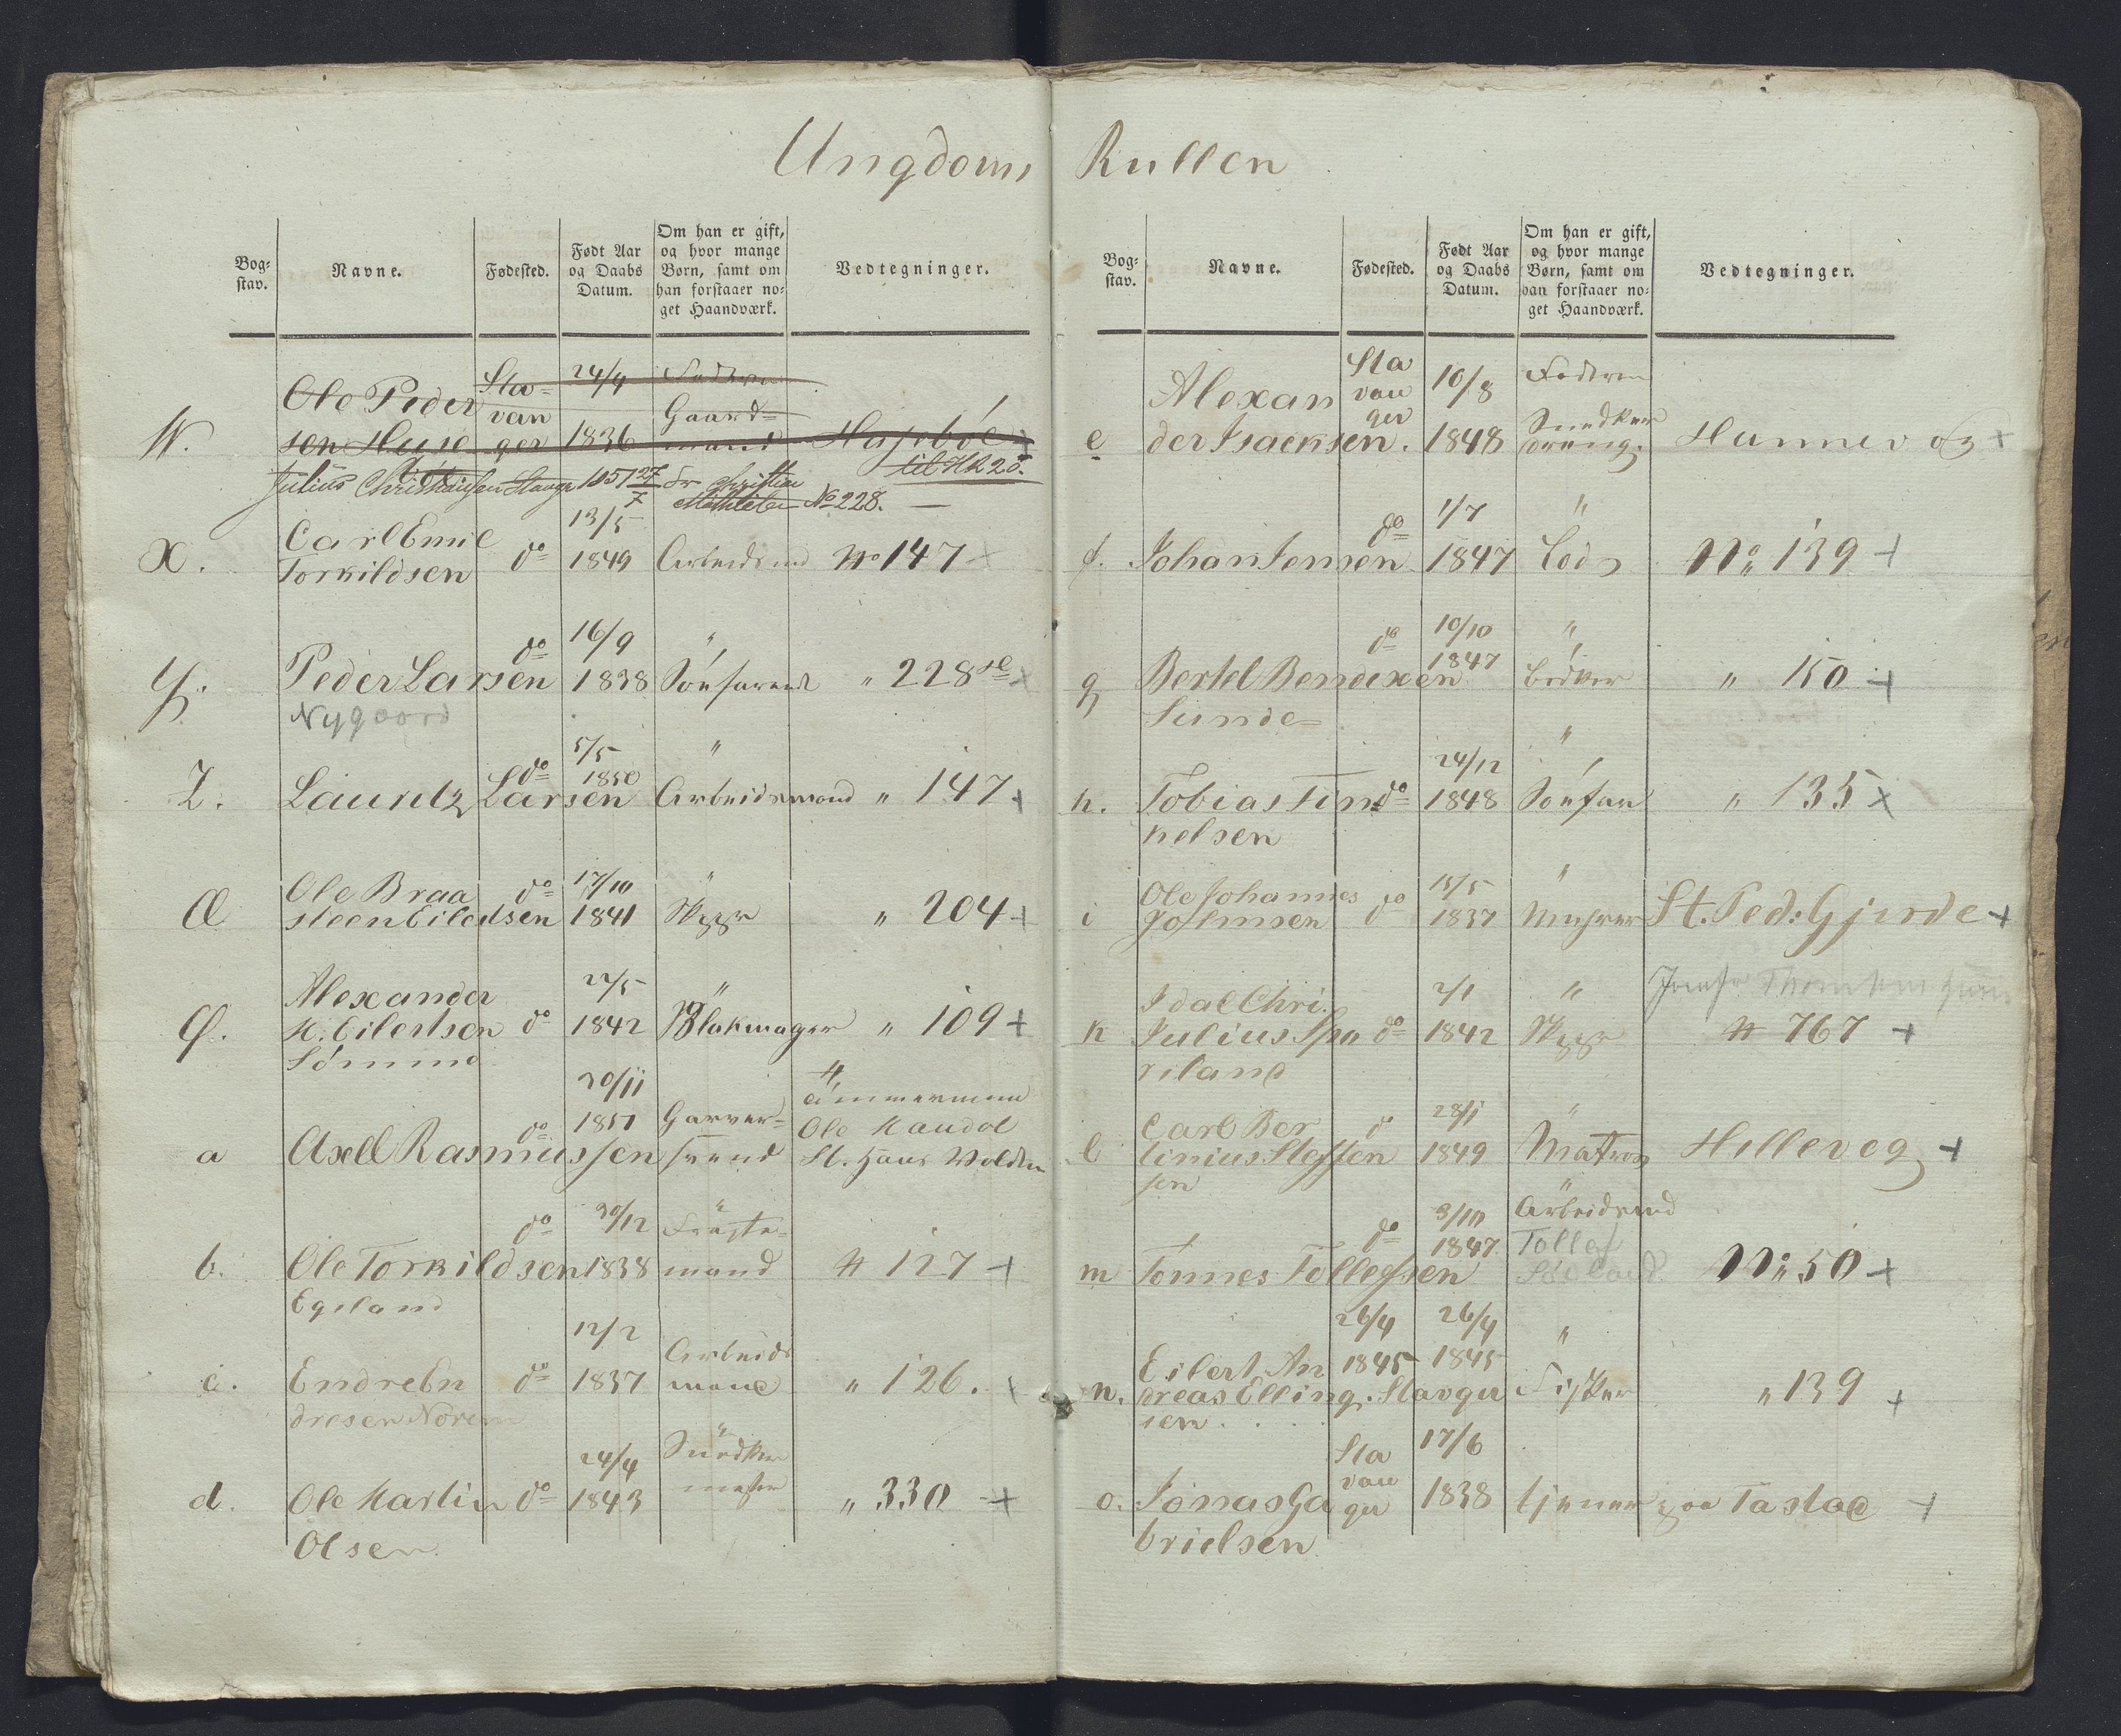 Ungdoms Rullen
Bog-
stav.
Navne.
Fødested.
Født Aar
og Daabs
Datum.
Om han er gift,
og hvor mange
Børn, samt om
han forstaaer no-
get Haandværk.
Vedtegninger.
W.
Ole Peder
sen Huse
Sta-
van
ger
24/4
1836
Faderen
Gaard-
mand
til HR 28.
Julius Christiansen Stavgr 1851 27/7 Fr Christian
No 228.
X.
Carl Emil
Torkildsen
do
13/5
1849
Arbeidsmd
No 147 +
Y.
Peder Larsen
Nygaard
do
16/9
1838
"
" 228 +
Z.
Lauritz Larsen
do
5/5
1850
"
Arbeidsmand
" 147 +
Æ
Ole Braa
steen Eilertsen
do
17/10
1841
"
" 204 +
Ø.
Alexander
H. Eilertsen
Sømme
do
22/5
1842
"
Blokmager
" 109 +
a
Axell Rasmussen
do
20/11
1851
Garver-
svend
Ole Haudal
St. Hans Volden
b.
Ole Torkildsen
Egeland
do
30/12
1838
"
mand
# 127 +
c.
Endre En
dresen Norem
do
12/2
1837
Arbeids
mand
" 126. +
d.
Ole Martin
Olsen.
do
24/4
1843
"
Snedker
mester
" 330 +
Bog-
stav.
Navne.
Fødested.
Født Aar
og Daabs
Datum.
Om han er gift,
og hvor mange
Børn, samt om
han forstaaer no-
get Haandværk.
Vedtegninger.
e
Alexan
der Isacksen.
Sta
van
ger
10/8
1848
Faderen
Snedker
dreng.
f.
Johan Jensen
do
1/7
1847
"
Lods
No 139 +
g
Bertel Bendixen
Sunde
do
10/10
1847
"
Bødker
" 150 +
h.
Tobias Tin
nelsen
do
24/12
1848
"
" 135 x
i
Ole Johannes
do
15/5
1837
"
Murer
St. Ped: Gjerde +
k
Idal Chri.
Julius Spa
riland
do
2/1
1842
"
# 767 +
l
Carl Ber
tinius Steffen
sen
do
28/1
1849
"
Matros
Hillevog +
m
Tønnes Tollefsen
do
3/10
1847
"
Arbeidsmd
Tollef
No 50 +
n.
Eilert An
dreas Elling.
sen.
26/4
1845
Stavger
26/4
1845
"
Fisker
" 139 +
o.
Jonas Ga
brielsen
Sta
van
ger
17/6
1838
tjener paa Tastad +